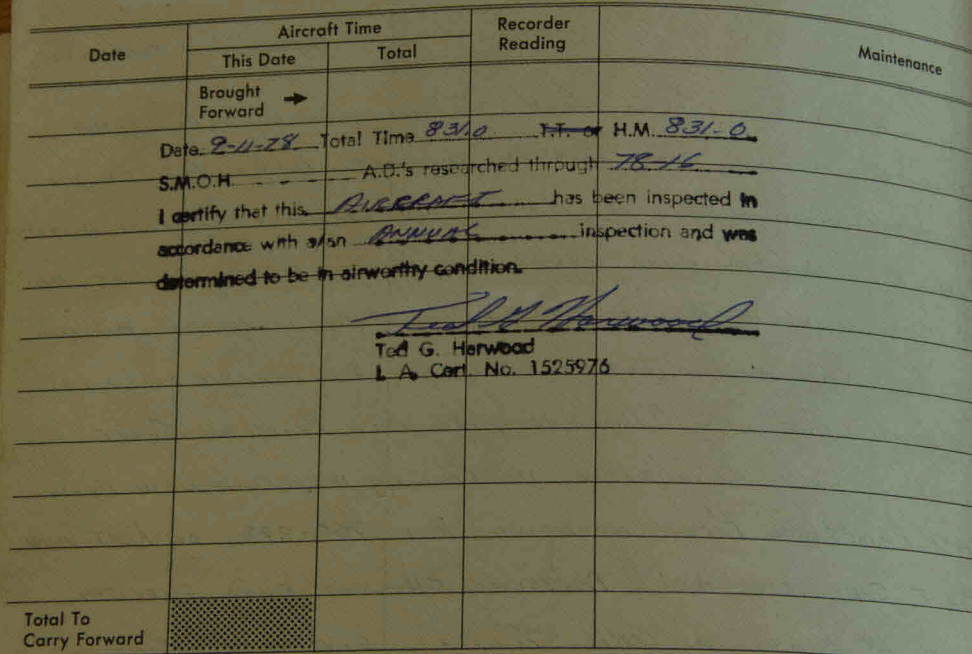 Date
Aircraft Time
This Date
Total
Recorder
Reading
Maintenance
Brought
Forward
Date 9-11-78 Total Time 831.0 T.T. or H.M. 831.0
S.M.O.H. A.D.'s researched through 78-16
I certify that this AIRCRAFT has been inspected in
accordance with a/an ANNUAL inspection and was
determined to be in airworthy condition.
Ted G Harwood
Ted G. Harwood
I. A. Cert. No. 1525976
Total To
Carry Forward